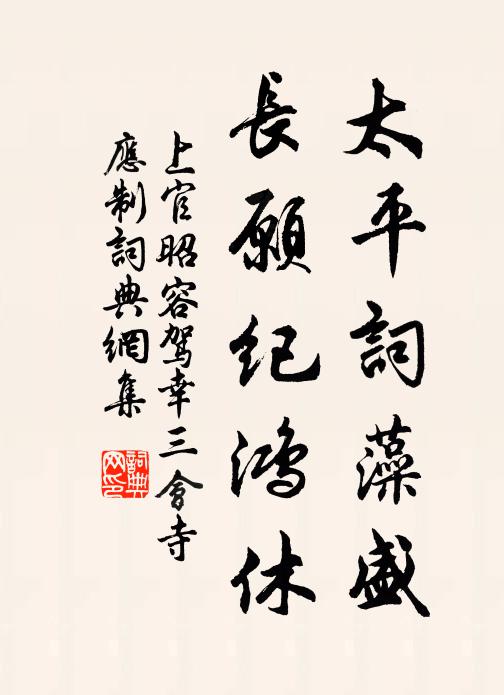 太平詞藻盛
長願紀鴻休
上官昭容駕幸三會寺
應制詞典網集
詞典網印